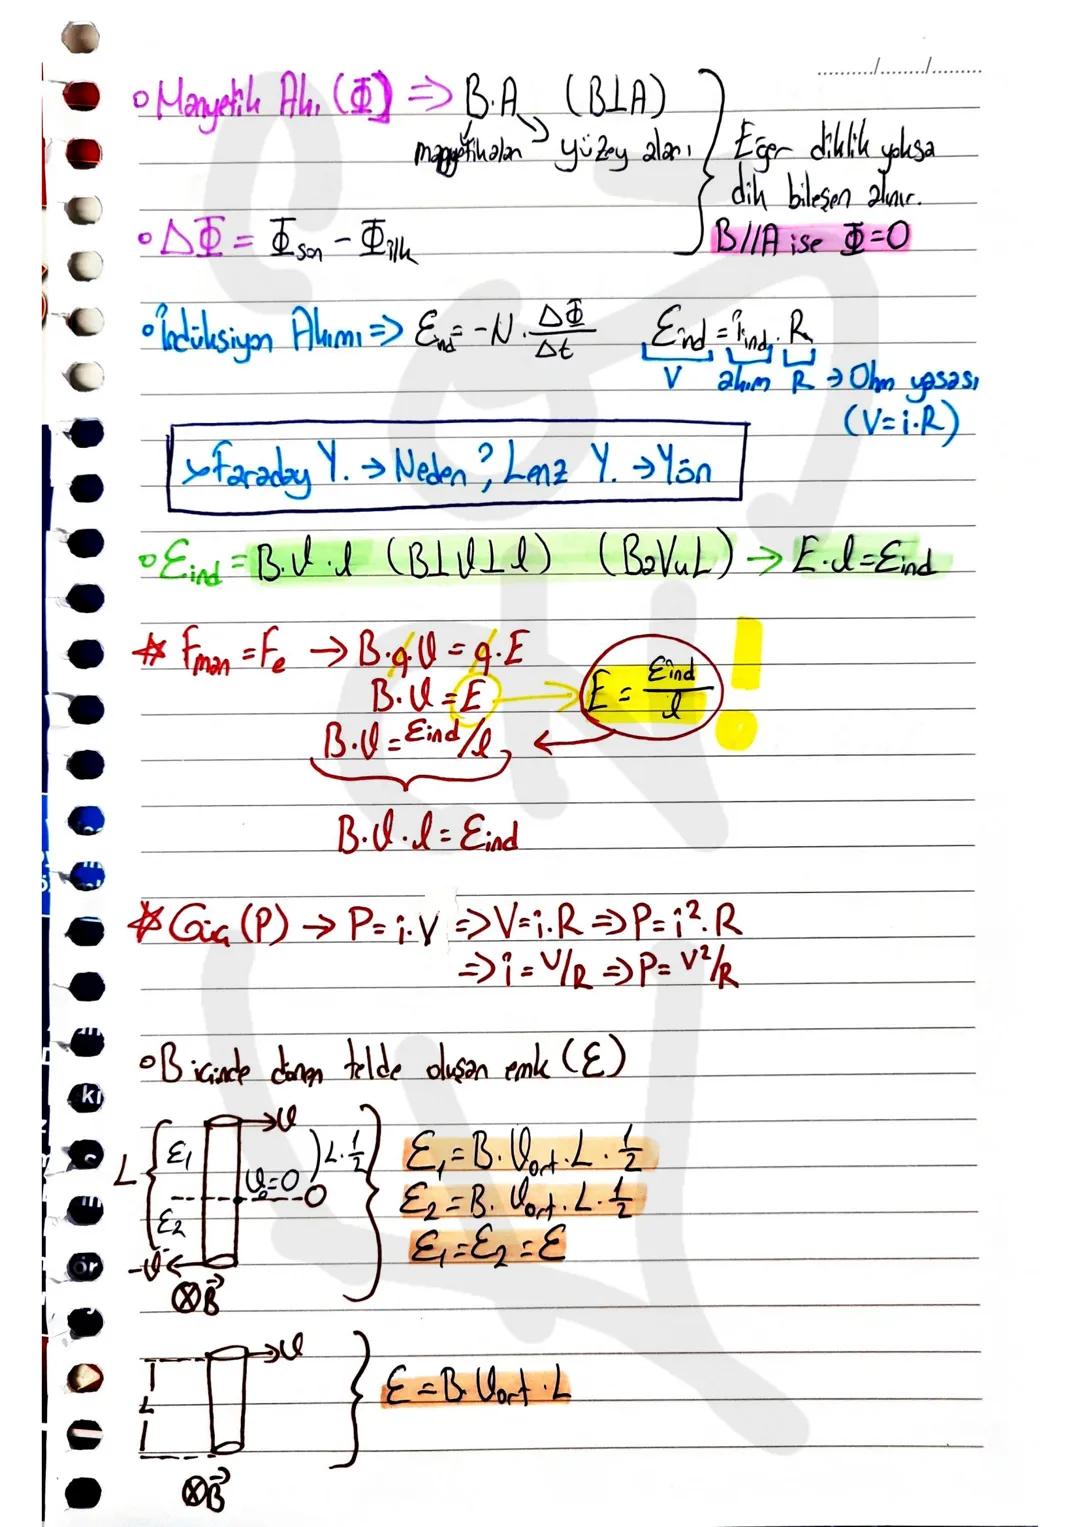 ........../......../.........
○ Manyetik Akı (Φ) ⇒ B.A (B⊥A)
manyetik alan yüzey alanı
Eğer diklik yoksa
dik bileşen alınır.
B//A ise Φ=0
○ ΔΦ = Φson - Φilk
○ İndüksiyon Akımı ⇒ Ɛind = -N. ΔΦ/Δt Ɛind = iind. R
V akım R → Ohm yasası
(V=i.R)
> Faraday Y. → Neden?, Lenz Y. → Yön
○ Ɛind = B.ϑ.l (B⊥ϑ⊥l) (BaVuL) → E.l=Ɛind
* Fman = Fe → B.q.ϑ = q.E
B.ϑ = E
E = Ɛind/l !
B.ϑ = Ɛind/l
B.ϑ.l = Ɛind
* Güç (P) → P= i.V ⇒ V=i.R ⇒ P=i².R
⇒ i = V/R ⇒ P= V²/R
○ B içinde dönen telde oluşan emk (Ɛ)
ϑ
L Ɛ1 ϑo=0 L.1/2
O
Ɛ2
-ϑ
⊗B⃗
Ɛ1 = B.ϑort.L.1/2
Ɛ2 = B.ϑort.L.1/2
Ɛ1=Ɛ2=Ɛ
ϑ
L
Ɛ = B.ϑort.L
⊗B⃗